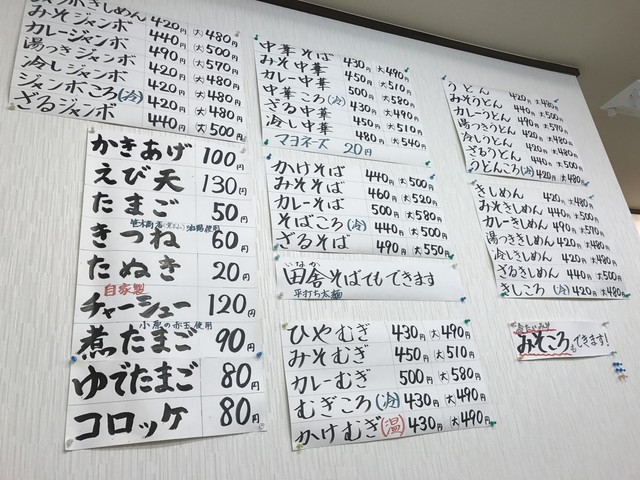 ジャンボきしめん 420円 大480円
みそジャンボ 440円 大500円
カレージャンボ 490円 大570円
湯つきジャンボ 420円 大480円
冷しジャンボ 420円 大480円
ジャンボころ(冷) 420円 大480円
ざるジャンボ 440円 大500円
かきあげ 100円
えび天 130円
たまご 50円
きつね 60円
たぬき 20円
自家製
チャーシュー 120円
小原の赤玉使用
煮たまご 90円
ゆでたまご 80円
コロッケ 80円
中華そば 430円 大490円
みそ中華 450円 大510円
カレー中華 500円 大580円
中華ころ(冷) 430円 大490円
ざる中華 450円 大510円
冷し中華 480円 大540円
マヨネーズ 20円
かけそば 440円 大500円
みそそば 460円 大520円
カレーそば 500円 大580円
そばころ(冷) 440円 大500円
ざるそば 490円 大550円
いなか
田舎そばでもできます
平打ち太麺
ひやむぎ 430円 大490円
みそむぎ 450円 大510円
カレーむぎ 500円 大580円
むぎころ(冷) 430円 大490円
かけむぎ(温) 430円 大490円
うどん 420円 大480円
みそうどん 440円 大500円
カレーうどん 490円 大570円
湯つきうどん 420円 大480円
冷しうどん 420円 大480円
ざるうどん 440円 大500円
うどんころ(冷) 420円 大480円
きしめん 420円 大480円
みそきしめん 440円 大500円
カレーきしめん 490円 大570円
湯つききしめん 420円 大480円
冷しきしめん 420円 大480円
ざるきしめん 440円 大500円
きしころ(冷) 420円 大480円
冷たいみそ
みそころもできます!